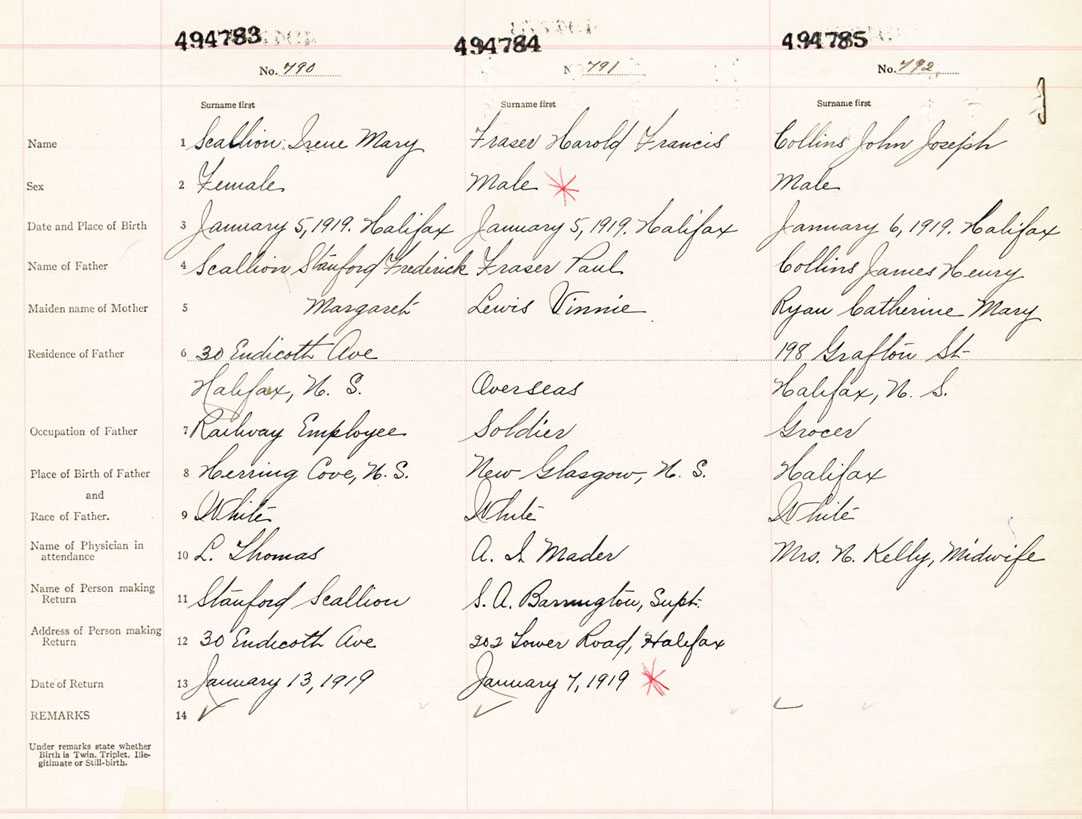 494783 494784 494785
No. 790 No. 791 No. 792
Surname first Surname first Surname first
Name 1 Scallion Irene Mary Fraser Harold Francis Collins John Joseph
Sex 2 Female Male Male
Date and Place of Birth 3 January 5, 1919. Halifax January 5, 1919. Halifax January 6, 1919. Halifax
Name of Father 4 Scallion Stanford Frederick Fraser Paul Collins James Henry
Maiden name of Mother 5 Margaret Lewis Vinnie Ryan Catherine Mary
Residence of Father 6 30 Endicott Ave 198 Grafton St
Halifax, N. S. Overseas Halifax, N. S.
Occupation of Father 7 Railway Employee Soldier Grocer
Place of Birth of Father 8 Herring Cove, N. S. New Glasgow, N. S. Halifax
and
Race of Father. 9 White White White
Name of Physician in
attendance 10 L. Thomas A. I. Mader Mrs. N. Kelly, Midwife
Name of Person making
Return 11 Stanford Scallion S. A. Barrington, Supt.
Address of Person making
Return 12 30 Endicott Ave 202 Tower Road, Halifax
Date of Return 13 January 13, 1919 January 7, 1919
REMARKS 14
Under remarks state whether
Birth is Twin, Triplet, Ille-
gitimate or Still-birth.